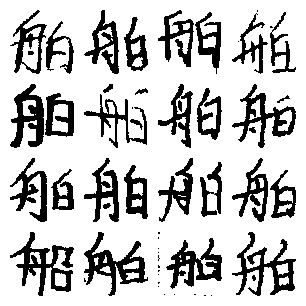 舶舶舶舶
舶舶舶舶
舶舶舶舶
船舶舶舶